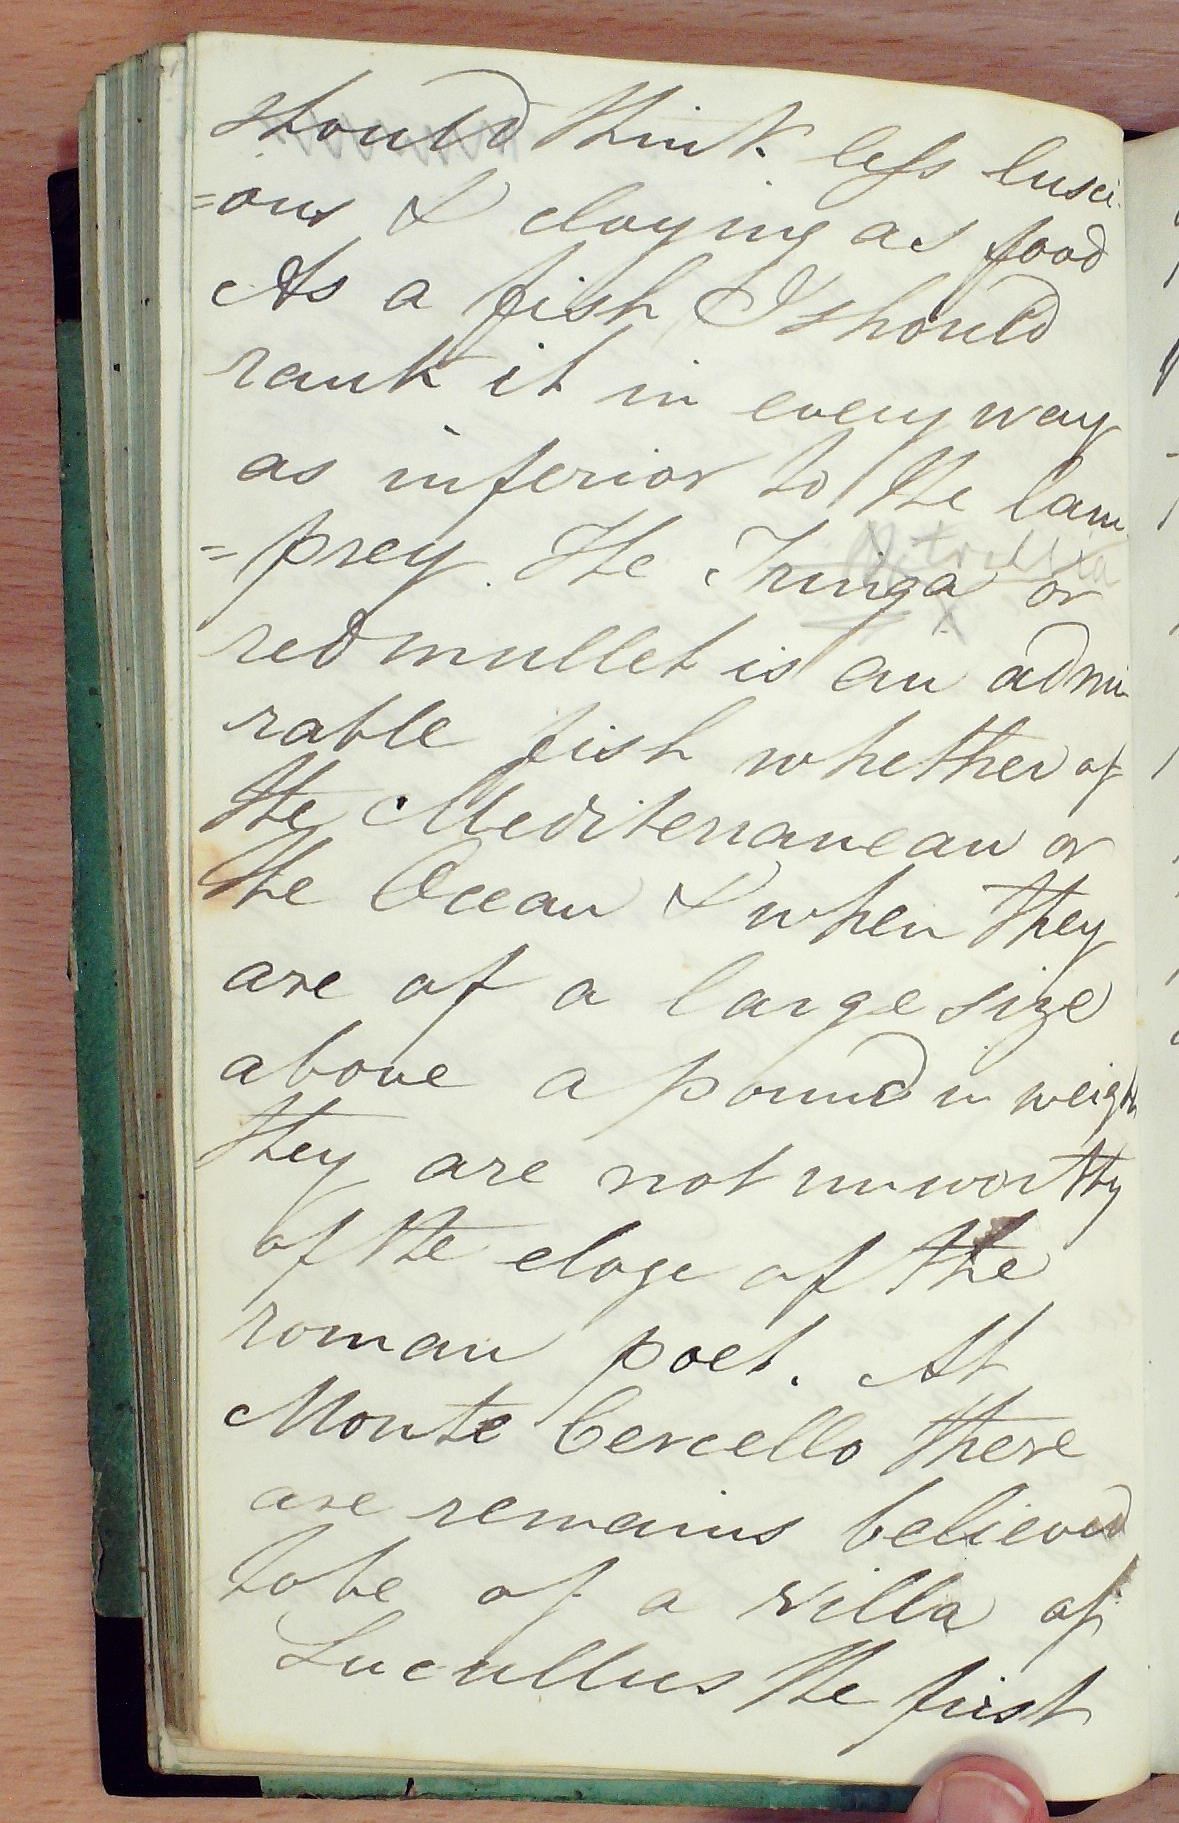 should think less lusci-
=ous & cloying as food
As a fish I should
rank it in every way
as inferior to the lam
=prey. The Tringa or
red mullet is an admi
rable fish whether of
the Mediterranean or
the Ocean & when they
are of a large size
above a pound in weight
they are not unworthy
of the eloge of the
roman poet. At
Monte Cercello there
are remains believed
to be of a villa of
Lucullus the first